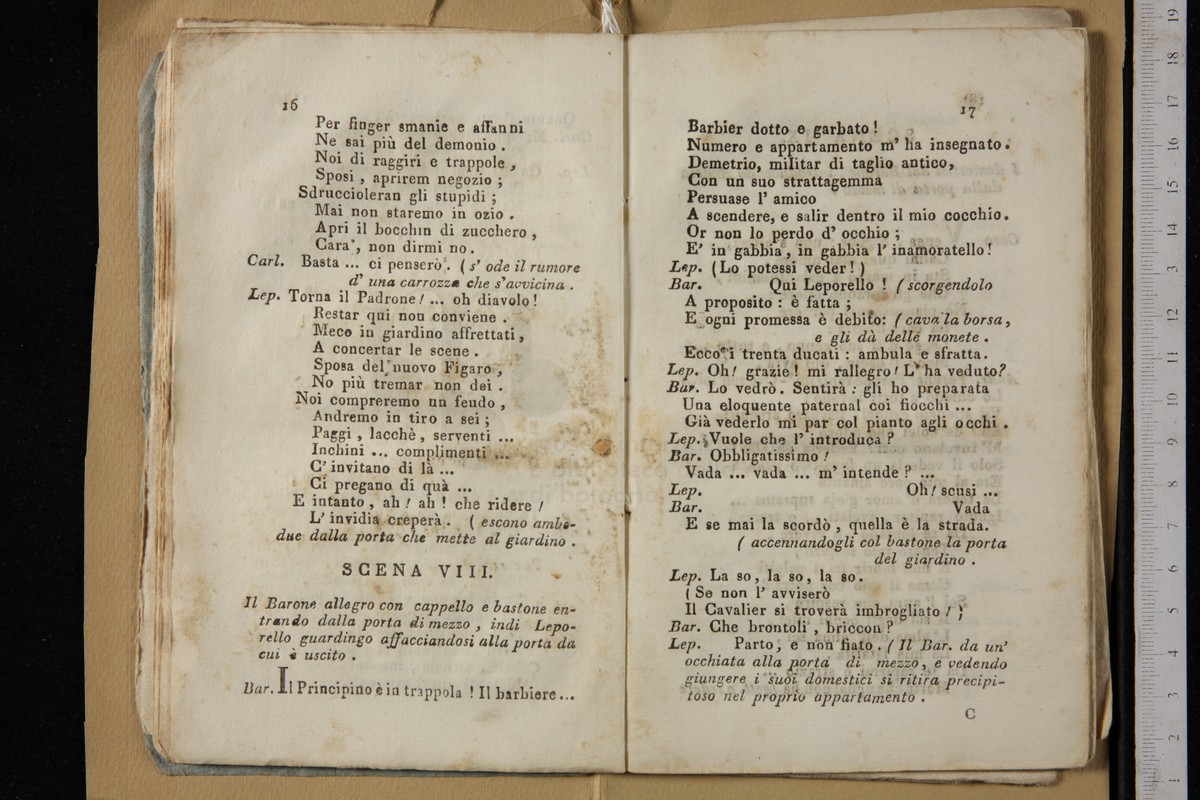 16
Per finger smanie e affanni
Ne sai più del demonio .
Noi di raggiri e trappole ,
Sposi , aprirem negozio ;
Sdruccioleran gli stupidi ;
Mai non staremo in ozio .
Apri il bocchin di zucchero ,
Cara , non dirmi no .
Carl. Basta ... ci penserò . ( s' ode il rumore
d' una carrozza che s'avvicina .
Lep. Torna il Padrone ! ... oh diavolo !
Restar qui non conviene .
Meco in giardino affrettati ,
A concertar le scene .
Sposa del nuovo Figaro ,
No più tremar non dei .
Noi compreremo un feudo ,
Andremo in tiro a sei ;
Paggi , lacchè , serventi ...
Inchini ... complimenti ...
C' invitano di là ...
Ci pregano di quà ...
E intanto , ah ! ah ! che ridere !
L' invidia creperà . ( escono ambe-
due dalla porta che mette al giardino .
SCENA VIII.
Il Barone allegro con cappello e bastone en-
trando dalla porta di mezzo , indi Lepo-
rello guardingo affacciandosi alla porta da
cui è uscito .
Bar. Il Principino è in trappola ! Il barbiere ...
17
Barbier dotto e garbato !
Numero e appartamento m' ha insegnato .
Demetrio, militar di taglio antico,
Con un suo strattagemma
Persuase l' amico
A scendere, e salir dentro il mio cocchio.
Or non lo perdo d' occhio ;
E' in gabbia , in gabbia l' inamoratello !
Lep. ( Lo potessi veder ! )
Bar. Qui Leporello ! ( scorgendolo
A proposito : è fatta ;
E ogni promessa è debito: ( cava la borsa ,
e gli dà delle monete .
Ecco i trenta ducati : ambula e sfratta.
Lep. Oh ! grazie ! mi rallegro ! L' ha veduto?
Bar. Lo vedrò . Sentirà : gli ho preparata
Una eloquente paternal coi fiocchi ...
Già vederlo mi par col pianto agli occhi .
Lep. Vuole che l' introduca ?
Bar. Obbligatissimo !
Vada ... vada ... m' intende ? ...
Lep. Oh ! scusi ...
Bar. Vada
E se mai la scordò , quella è la strada.
( accennandogli col bastone la porta
del giardino .
Lep. La so , la so , la so .
( Se non l' avviserò
Il Cavalier si troverà imbrogliato ! )
Bar. Che brontoli , briccon ?
Lep. Parto , e non fiato . ( Il Bar. da un'
occhiata alla porta di mezzo , e vedendo
giungere i suoi domestici si ritira precipi-
toso nel proprio appartamento .
C
1 2 3 4 5 6 7 8 9 10 11 12 13 14 15 16 17 18 19